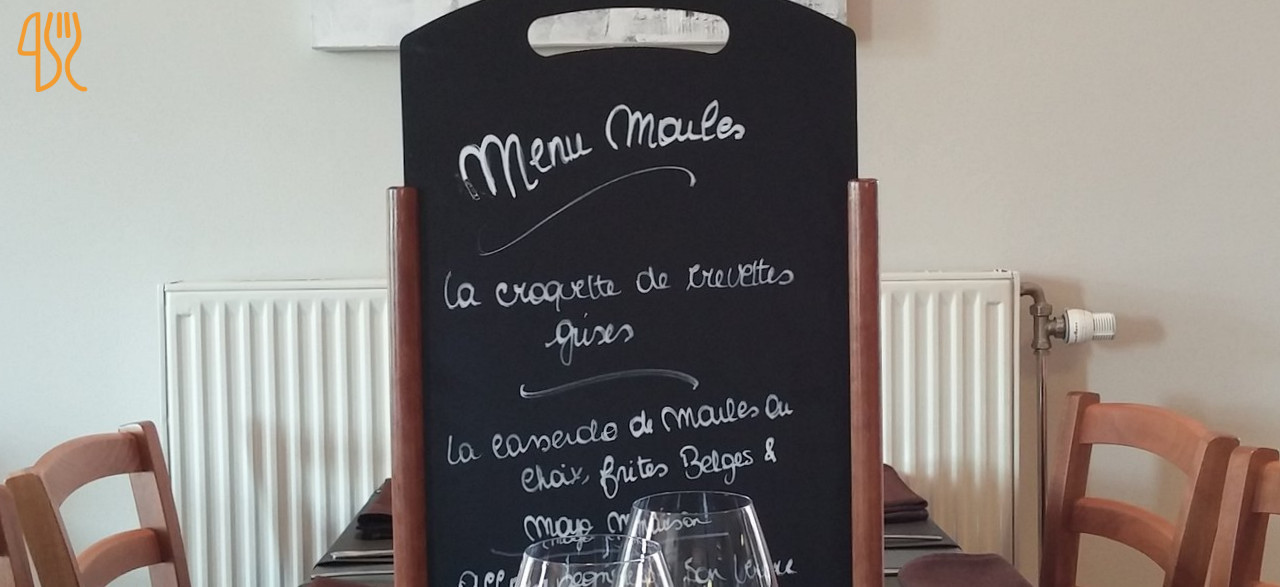 Menu Moules
La croquette de crevettes
grises
La casserole de Moules au
choix, frites Belges &
Mayo Maison
son verre